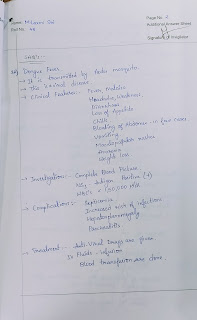 Name: M. Varun Sai
Roll No. 48
Page No.
Additional Answer Sheet
Signature of Invigilator
LAQ's :-
Dengue Fever
→ It is transmitted by Aedes mosquito.
→ This is a viral disease
→ Clinical Features :- Fever, Malaise
Headache, Weakness,
Diarrhoea
Loss of Appetite
Chills
Bleeding of Abdomen - in few cases
Vomiting
Maculopapular rashes
Weight loss
→ Investigation :- Complete Blood Picture
NS1 Antigen Positive (+)
→ Complications :- Septicemia
Increased risk of infections
Hepatosplenomegaly
Pancreatitis
→ Treatment :- Anti-Viral Drugs are given
IV Fluids - infusion
Blood transfusion are done.